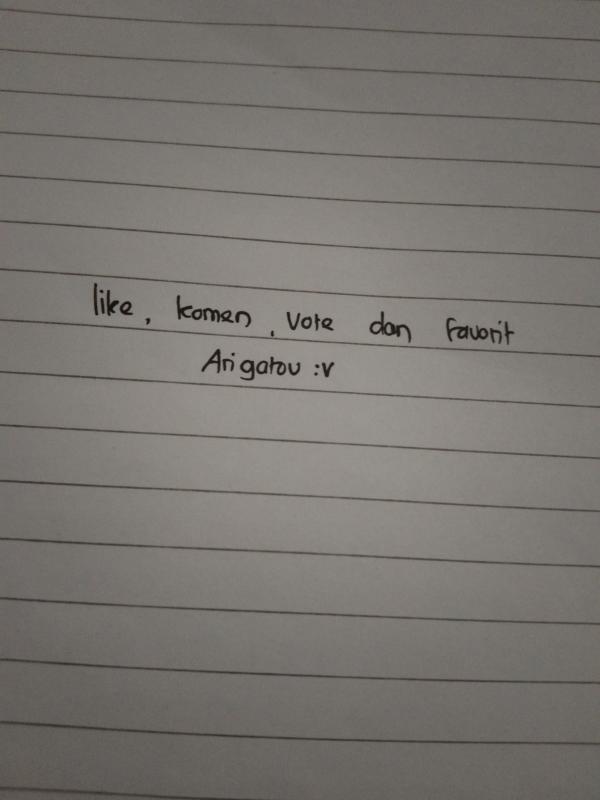 like, komen, Vote dan favorit
Arigatou :v